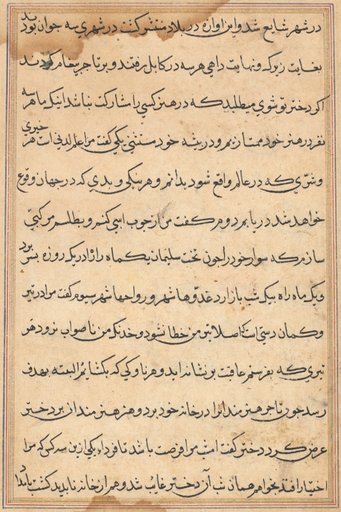 در شهر شایع شد و این اوازه در بلاد منتشر کشت در شهری سه جوان بودند
بغایت زیرک و نهایت داهی هر سه در کابل رفتند و بتاجر پیغام کردند
اکر دختر تو شوی میطلبد که در هنر کسی را مشارکت نباشد اینک ما هر سه
نفر در هنر خود ممتازیم و در پیشه خود مستثنی یکی کفت مرا علم لدنی است هر خیری
و شری که در عالم واقع شود بدانم و هر نیکی و بدی که در جهان وقوع
خواهد شد دریابم دوم کفت من از چوب اسپی کنم و بطلسم مرکبی
سازم که سوار خود را چون تخت سلیمان یکماه راه را در یک روزه برد
و یکماه راه بیک شب بازارد غدوها شهر و رواحها شهر سیوم کفت مرا در تیر
و کمان دستی است که اصلا تیر من خطا نشود و خدنک من ناصواب نرود هر
تیری که بفرستم عاقبت بر نشانه اید و هر ناوکی که بکشایم البته بهدف
رسد چون تاجر هنرمندانرا در خانه خود برد و هنر هنرمندان بر دختر
عرض کرد دختر کفت امشب مرا فرصت باشد تا فردا یکی ازین سه کس که مرا
اختیار افتد بخواهم همان شب آن دختر غایب شد و هم از خانه ناپدید کشت بامداد